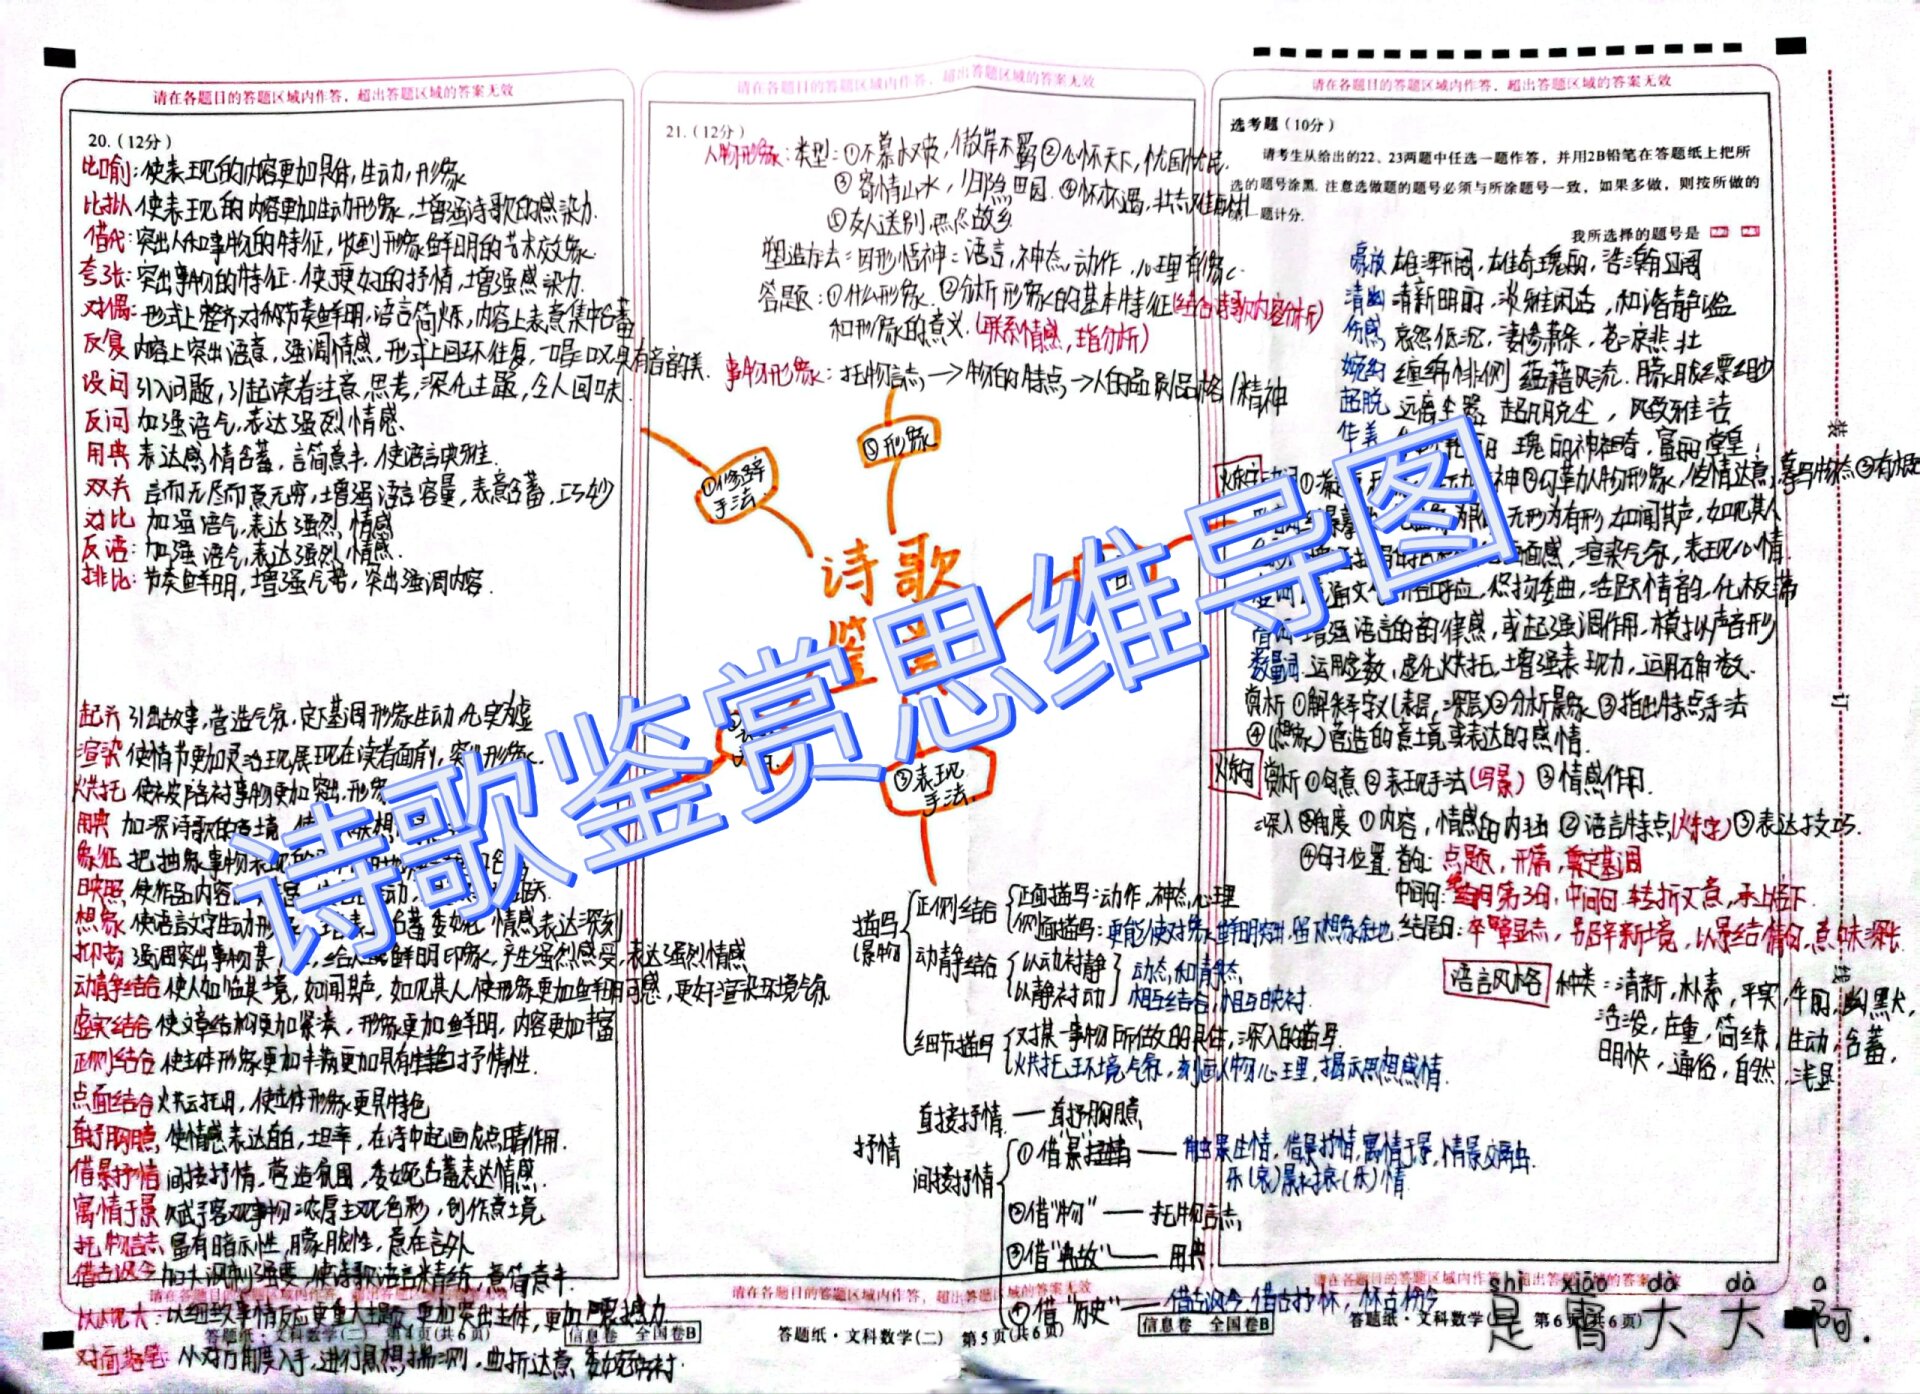 请在各题目的答题区域内作答，超出答题区域的答案无效
20.（12分）
比喻：使表现的内容更加具体，生动，形象
比拟 使表现的内容更加生动形象，增强诗歌的感染力.
借代：突出人和事物的特征，收到形象鲜明的艺术效果.
夸张：突出事物的特征.使更好的抒情，增强感染力.
对偶：形式上整齐对称节奏鲜明，语言简炼，内容上表意集中含蓄
反复 内容上突出语意，强调情感，形式上回环往复，一唱三叹具有音韵美.
设问 引入问题，引起读者注意，思考，深化主题，令人回味.
反问 加强语气，表达强烈情感.
用典 表达感情含蓄，言简意丰，使语言典雅.
双关 言而无尽而意无穷，增强语言容量，表意含蓄，巧妙
对比 加强语气，表达强烈情感
反语：加强语气，表达强烈情感.
排比：节奏鲜明，增强气势，突出强调内容.
起兴 引出故事，营造气氛，定下基调形象生动，化实为虚
渲染 使情节更加灵活现展现在读者面前，突出形象.
烘托 使被陪衬事物更加突出，形象
用典 加深诗歌的意境
象征 把抽象事物表现
映照 使作品内容
想象 使语言文字生动形象 委婉 情感表达深刻
抑扬 强调突出事物某 给人以鲜明印象，产生强烈感受，表达强烈情感
动静结合 使人如临其境，如闻其声，如见其人，使形象更加鲜明可感，更好渲染环境气氛
虚实结合 使文章结构更加紧凑，形象更加鲜明，内容更加丰富
正侧结合 使主体形象更加丰满更加具有抒情性.
点面结合 烘云托月，使主体形象更具特色
直抒胸臆 使情感表达直白，坦率，在诗中起画龙点睛作用.
借景抒情 间接抒情，营造氛围，委婉含蓄表达情感.
寓情于景 赋予客观事物浓厚主观色彩，创作意境
托物言志 富有暗示性，朦胧性，意在言外
借古讽今 加大讽刺强度，使诗歌语言精练，言简意丰.
请在各题目的答题区域内作答，超出答题区域的答案无效
以小见大：以细致事情反应更重大主题，更加突出主体，更加震撼力
答题纸·文科数学(二) 第4页(共6页)
信息卷 全国卷B
对面落笔：从对方角度入手，进行思想揣测，曲折达意，委婉
请在各题目的答题区域内作答，超出答题区域的答案无效
21.（12分）
人物形象：类型：①不慕权贵，傲岸不羁 ②心怀天下，忧国忧民.
③寄情山水，归隐田园.④怀才不遇，壮志难酬
⑤友人送别，思念故乡.
塑造方法：因形悟神：语言，神态，动作，心理肖像.
答题：①什么形象.②分析形象的基本特征(结合诗歌内容分析)
和形象的意义.(联系情感，主旨分析)
事物形象：托物言志 → 物的特点 → 人的品质品格/精神
①修辞手法
⑤形象
诗歌
③表现手法
描写(景物)
正侧结合
正面描写：动作，神态，心理
侧面描写：更能使对象鲜明突出，留下想象余地.
动静结合
以动衬静
以静衬动
动态和静态
相互结合，相互映衬.
细节描写
对某一事物所做的具体，深入的描写.
烘托环境气氛，刻画人物心理，揭示思想感情.
抒情
直接抒情 — 直抒胸臆
间接抒情
①借景抒情 — 触景生情，借景抒情，寓情于景，情景交融
乐(哀)景衬哀(乐)情
②借“物” — 托物言志
③借“典故” — 用典
请在各题目的答题区域内作答，超出答题区域的答案无效
④借“历史” — 借古讽今，借古抒怀，怀古伤今
答题纸·文科数学(二) 第5页(共6页)
信息卷 全国卷B
请在各题目的答题区域内作答，超出答题区域的答案无效
选考题（10分）
请考生从给出的22、23两题中任选一题作答，并用2B铅笔在答题纸上把所
选的题号涂黑.注意选做题的题号必须与所涂题号一致，如果多做，则按所做的
题计分.
我所选择的题号是
豪放 雄浑开阔，雄奇瑰丽，浩瀚辽阔
清幽 清新明丽，淡雅闲适，和谐静谧
伤感 哀怨低沉，凄惨萧杀，苍凉悲壮
婉约 缠绵悱恻 蕴藉风流.朦胧缥缈
超脱 远离尘嚣 超凡脱尘，风致雅洁
华美 瑰丽神奇，富丽堂皇
炼字 勾革人物形象，传情达意，摹写物态
无形为有形，如闻其声，如见其人
画面感，渲染气氛，表现心情.
活跃情韵，化板滞
增强语言的韵律感，或起强调作用，模拟声音形
数量词 运用虚数，虚化烘托，增强表现力，运用确数.
赏析 ①解释字义(表层，深层)②分析景象 ③指出特点手法
④(想象)营造的意境或表达的感情.
炼句 赏析 ①句意 ②表现手法(写景) ③情感作用.
深入角度 ①内容，情感的内涵 ②语言特点(炼字) ③表达技巧.
④句子位置.首句：点题，开篇，奠定基调
中间句：第3句，中间句.转折文意，承上启下.
结尾句：卒章显志，另辟新境，以景结情句，意味深长.
语言风格 种类：清新，朴素，平实，华丽，幽默，
活泼，庄重，简练，生动，含蓄，
明快，通俗，自然，浅显
请在各题目的答题区域内作答，超出答题区域的答案无效
答题纸·文科数学(二) 第6页(共6页)
装
订
诗歌鉴赏思维导图
shì xiāo dà dà a
是宵大大啊.